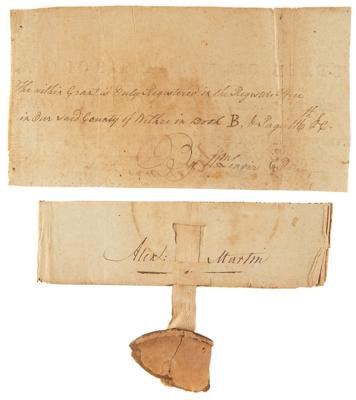 The within Grant is Duly Registered in the Registers Office
in Our said County of Wilkes in Book B. & Page 116th &c.
By Wm Lenoir C R
Alex: Martin